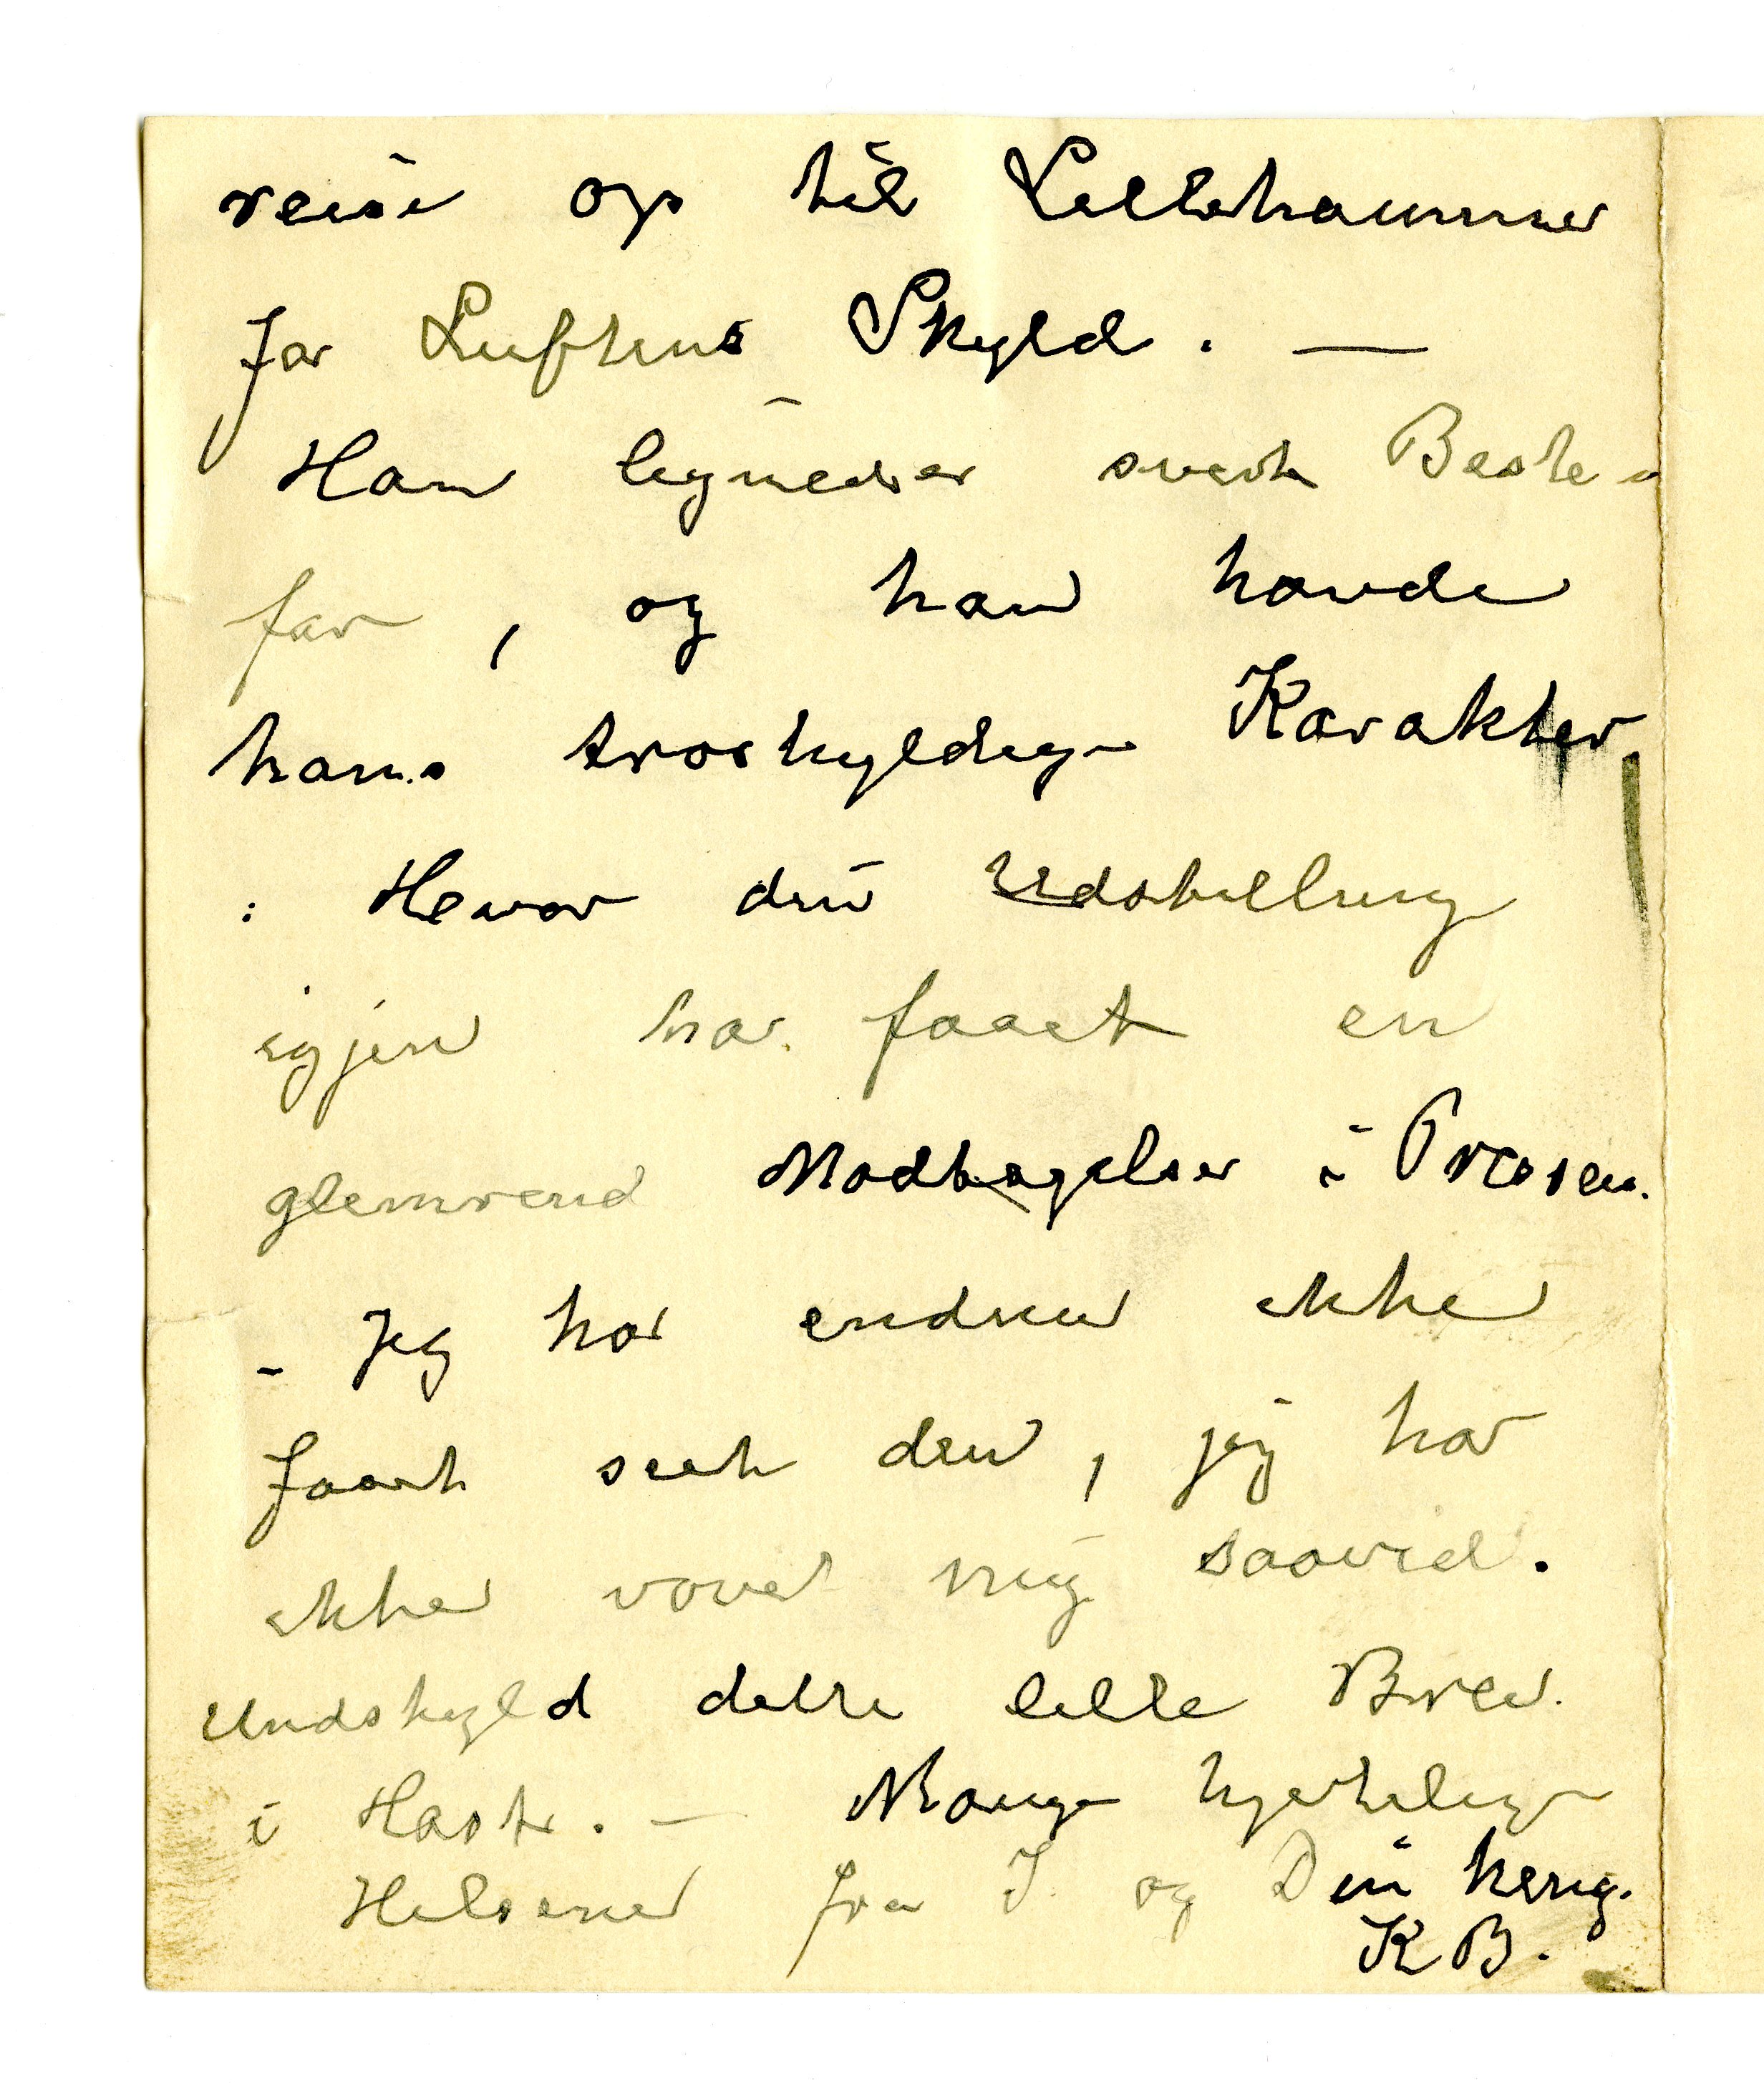 reise op til Lillehammer
for Luftens Skyld. —
Han lignede svært Beste-
far, og han havde
hans troskyldige Karakter
: Hvor din Udstilling
igjen har faaet en
glimrend Modtagelse i Pressen.
- Jeg har endnu ikke
faaet seet den, jeg har
ikke vovet mig saavid.
Undskyld dette lille Brev
i Hast. — Mange hjertelige
Hilsener fra I. og Din heng.
KB.